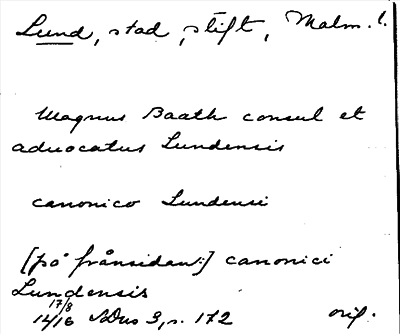 Lund, stad, stift, Malm. l.
Magnus Baath consul et
advocatus Lundensis
canonico Lundensi
[på frånsidan:] canonici
Lundensis
17/8
14/16 Dus 3, s. 172 orig.